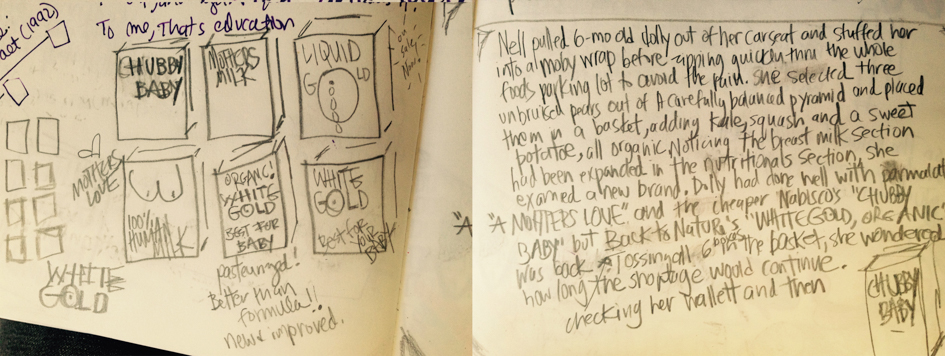 act (1992)
To me, That's education
CHUBBY
BABY
MOTHERS
MILK
LIQUID
GOLD
on
sale
Now!
MOTHERS
LOVE
100%
HUMAN
MILK
ORGANIC!
WHITE
GOLD
BEST FOR
BABY
WHITE
GOLD
Best FOR
YOUR
BABY
WHITE
GOLD
pasteurized!
Better than
formula!!
new & improved.
Nell pulled 6-mo old dolly out of her carseat and stuffed her
into a moby wrap before zipping quickly thru the whole
foods parking lot to avoid the rain. She selected three
unbruised pears out of A carefully balanced pyramid and placed
them in a basket, adding kale, squash and a sweet
potatoe, all organic. Noticing the breast milk section
had been expanded in the nutritionals section, she
examed a new brand. Dolly had done well with parmalat
"A "A MOHTERS LOVE" and the cheaper Nabisco's "CHUBBY
BABY" but Back to Nature's "WHITE GOLD, ORGANIC"
was back. Tossing all 6 the basket, she wondered
how long the shortage would continue.
checking her wallett and then
CHUBBY
BABY